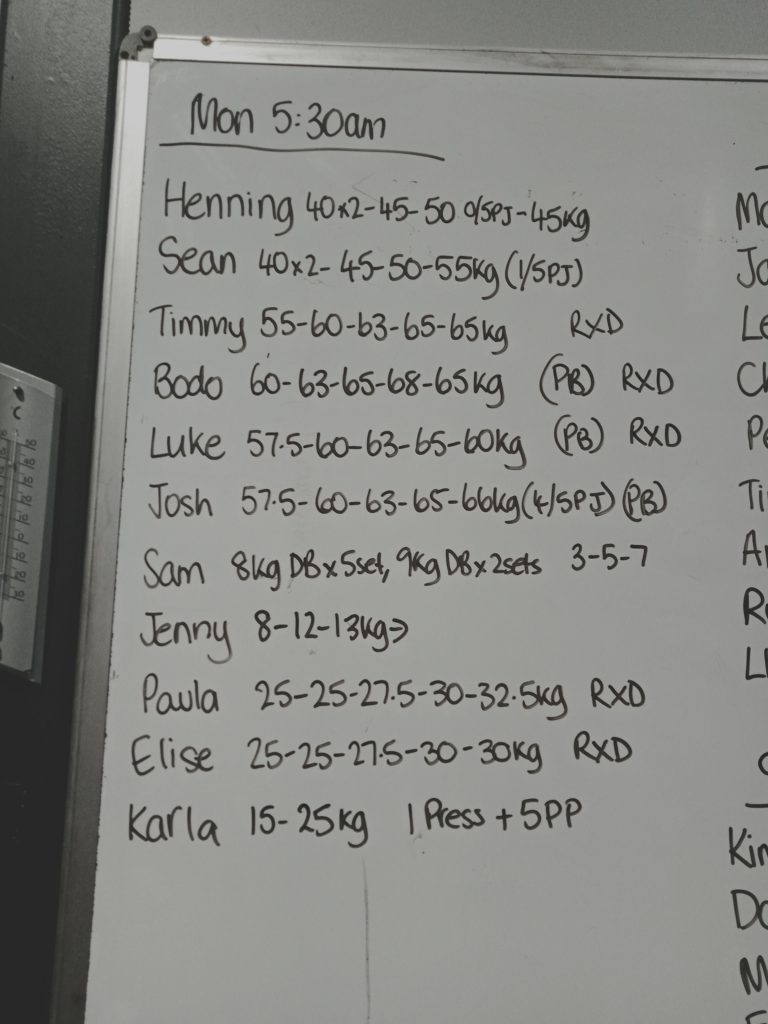 Mon 5:30am
Henning 40x2-45-50 0/5PJ-45kg
Sean 40x2-45-50-55kg (1/5PJ)
Timmy 55-60-63-65-65kg RXD
Bodo 60-63-65-68-65kg (PB) RXD
Luke 57.5-60-63-65-60kg (PB) RXD
Josh 57.5-60-63-65-66kg (4/5PJ) (PB)
Sam 8kg DBx5set, 9kg DBx2sets 3-5-7
Jenny 8-12-13kg→
Paula 25-25-27.5-30-32.5kg RXD
Elise 25-25-27.5-30-30kg RXD
Karla 15-25kg 1 Press + 5PP